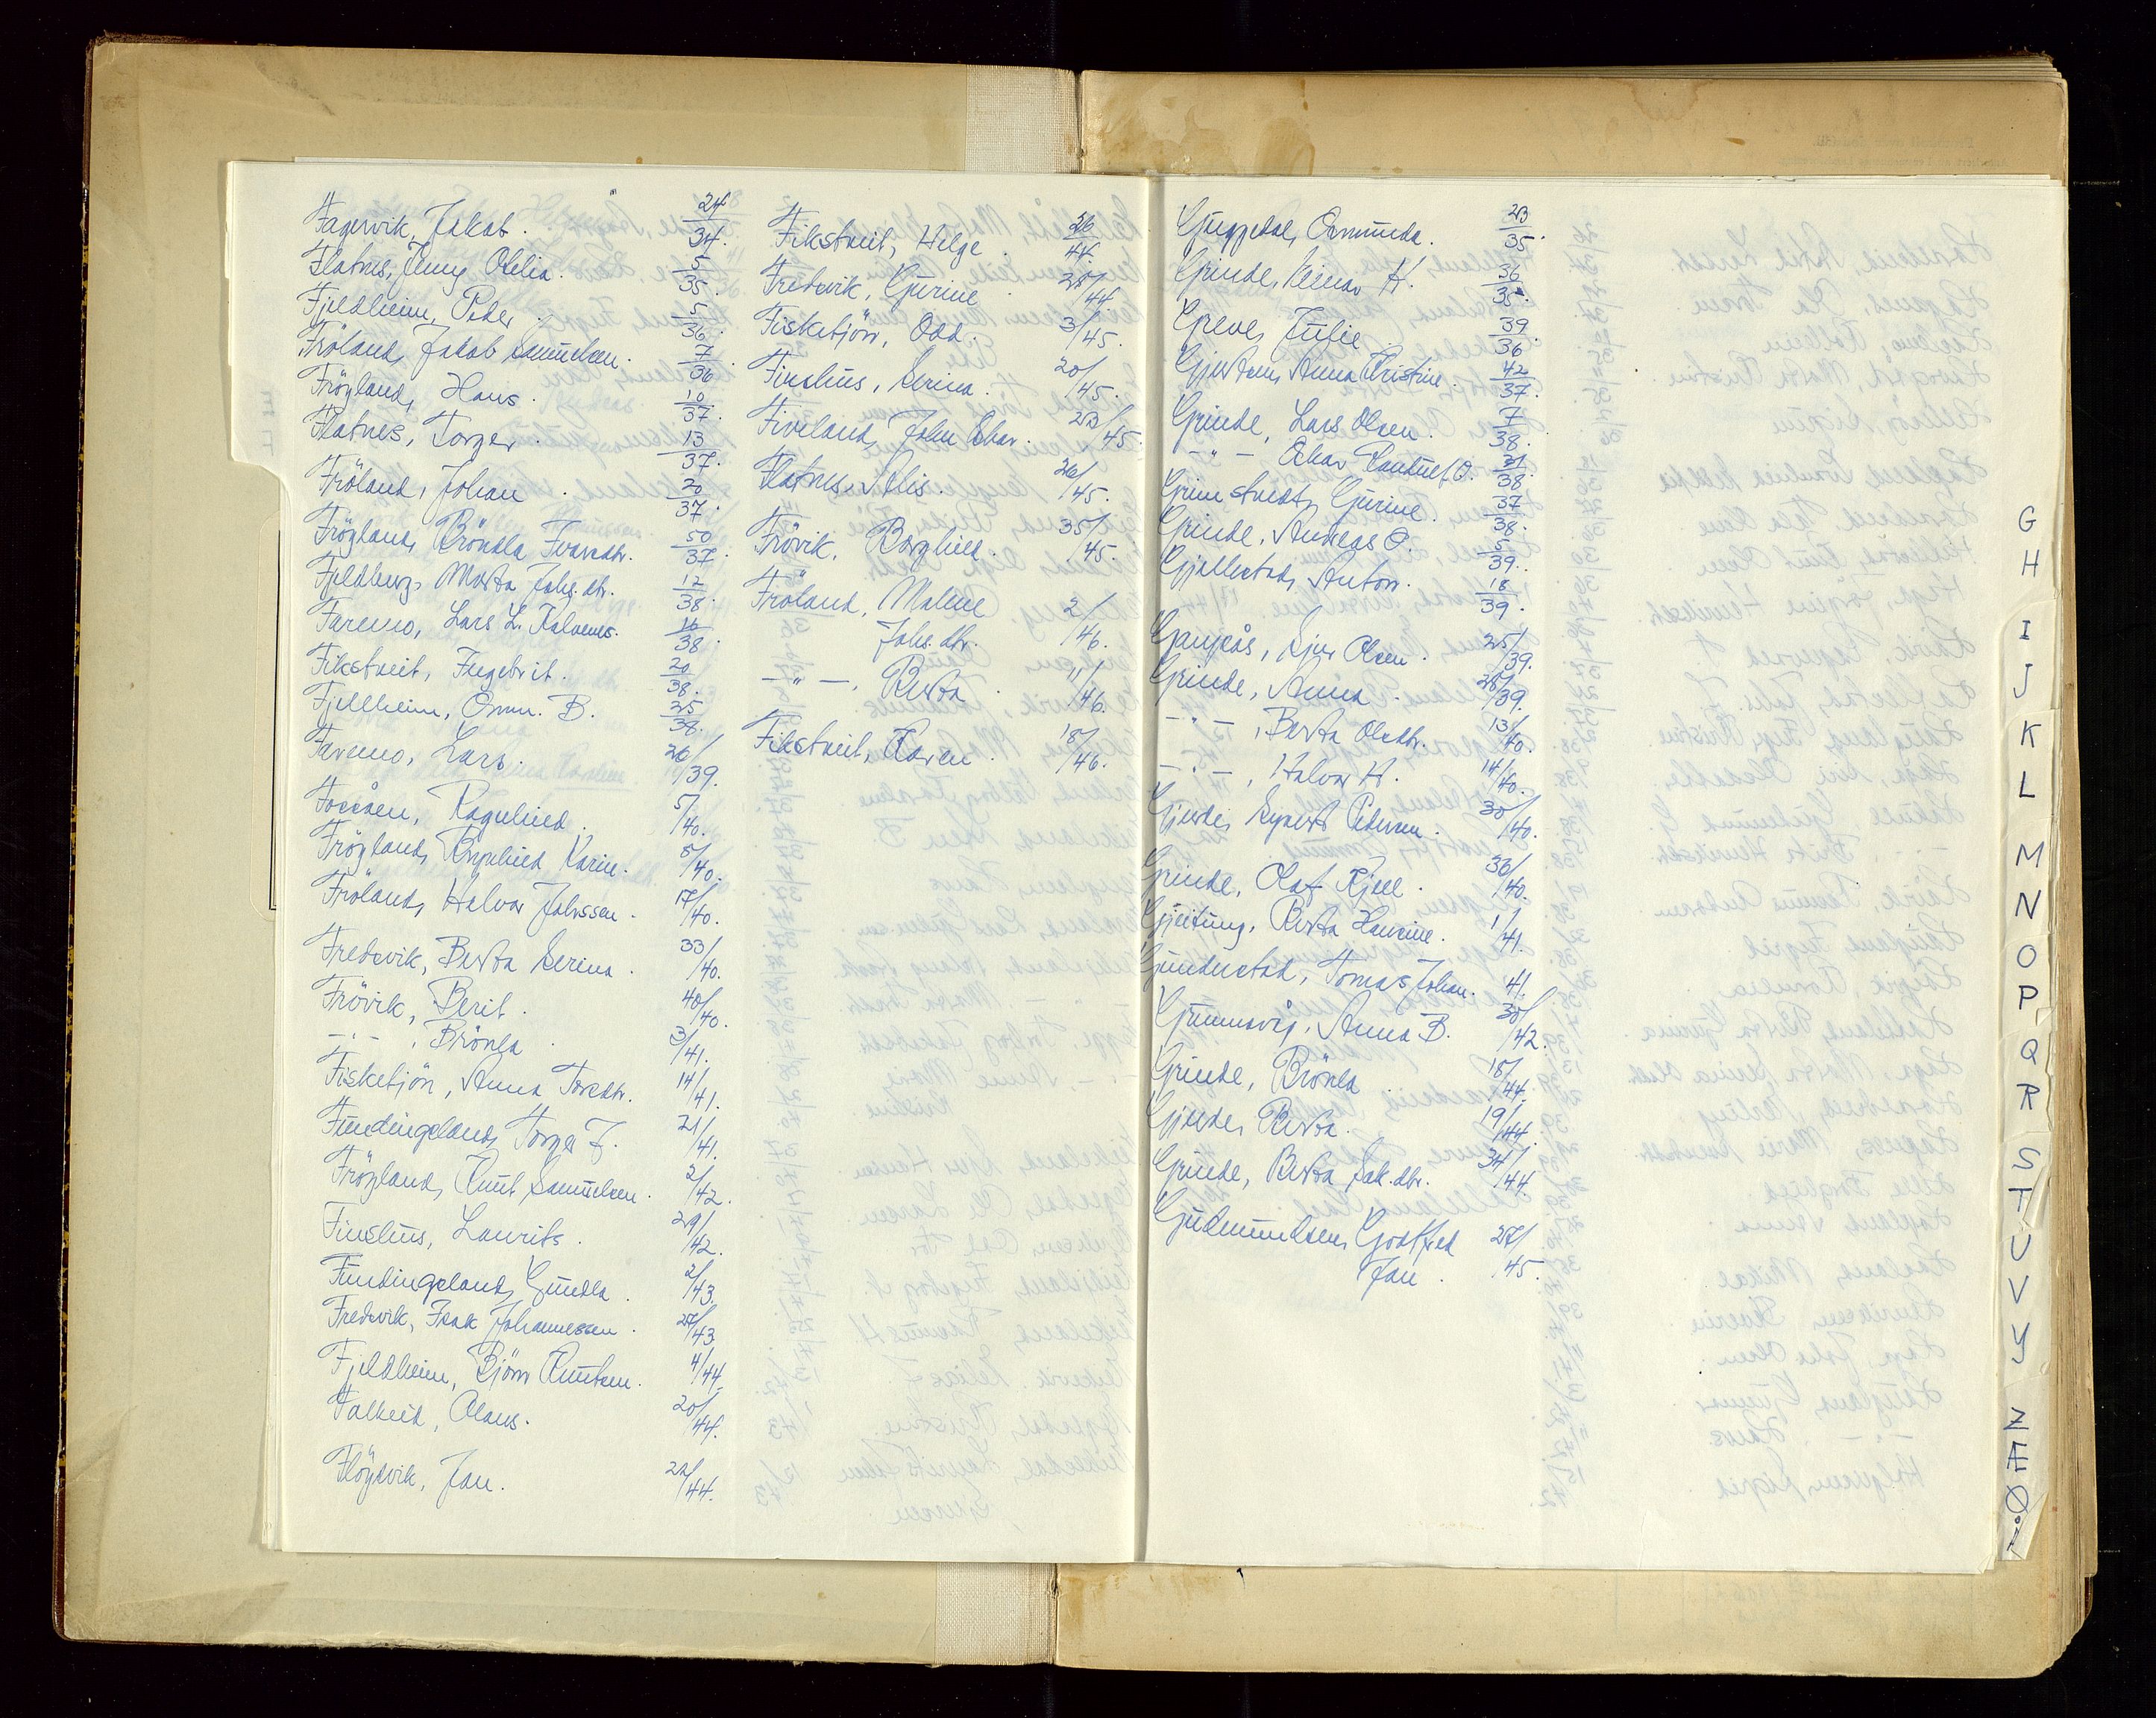 Fagervik, Jakob. 24/34.
Flatnes, Jenny Otelia. 5/35.
Fjeldheim, Peder. 5/36.
Fröland, Jakob Samuelsen. 7/36
Frögland, Hans. 10/37.
Flatnes, Torger. 13/37.
Fröland, Johan. 20/37.
Frögland, Bröndla Ivarsdtr. 50/37.
Fjeldberg, Marta Johs.dtr. 12/38.
Faremo, Lars L. Kalvenes. 16/38.
Fikstveit, Ingebrit. 20/38.
Fjellheim, Omm. B. 25/38.
Faremo, Lars. 26/39.
Fossåen, Ragnhild. 5/40.
Frögland, Ragnhild Karin. 8/40.
Fröland, Halvor Johssen. 17/40.
Fredsvik, Berta Serina. 33/40.
Frövik, Berit. 40/40.
-"-, Brönla. 3/41.
Fisketjön, Anna Toredtr. 14/41.
Fundingsland, Torger J. 21/41.
Frögland, Knut Samuelsen. 2/42.
Finshus, Laurits. 29/42.
Fundingsland, Gundla. 2/43.
Fredsvik, Isak Johannessen. 27/43
Fjeldheim, Björn Knutsen. 4/44.
Falkeid, Olaus. 20/44.
Flöysvik, Jan. 22/44.
Fikstveit, Helge. 26/44.
Fredsvik, Gurine. 28/44
Fisketjönn, Odd. 3/45.
Finshus, Serina. 20/45.
Fiveland, John Edvar. 23/45.
Flatnes, Nelis. 26/45.
Frövik, Borghild. 35/45.
Fröland, Malene 2/46.
Johs.dtr.
-"-, Berta. 11/46.
Fikstveit, Karen. 18/46.
Guggedal, Osmunda. 23/35.
Grinde, Reinar H. 36/35.
Greve, Julie. 39/36
Gjertsen, Anna Kristine. 42/37.
Grinde, Lars Olsen. 7/38.
-"- Oskar Randulf O. 31/38.
Grimstvedt, Gurine. 37/38.
Grinde, Andreas O. 5/39.
Gjellestad, Anton. 18/39.
Ganjeås, Sjur Olsen. 25/39.
Grinde, Anna. 28/39.
-"-, Berta Olsdtr. 13/40.
-"-, Halvor H. 14/40.
Gjerde, Synert Pedersen. 30/40.
Grinde, Olaf Kjell. 36/40.
Gjeitung, Berta Hansine. 1/41.
Gunderstad, Tomas Johan. 41.
Gunnevåg, Anna B. 30/42.
Grinde, Brönla. 18/44.
Gjerde, Berta. 19/44.
Grinde, Berta Sak.dtr. 34/44.
Gudmundsen, Godtfred 27/45.
Jan.
G
H
I
J
K
L
M
N
O
P
Q
R
S
T
U
V
Y
Z
Æ
Ø